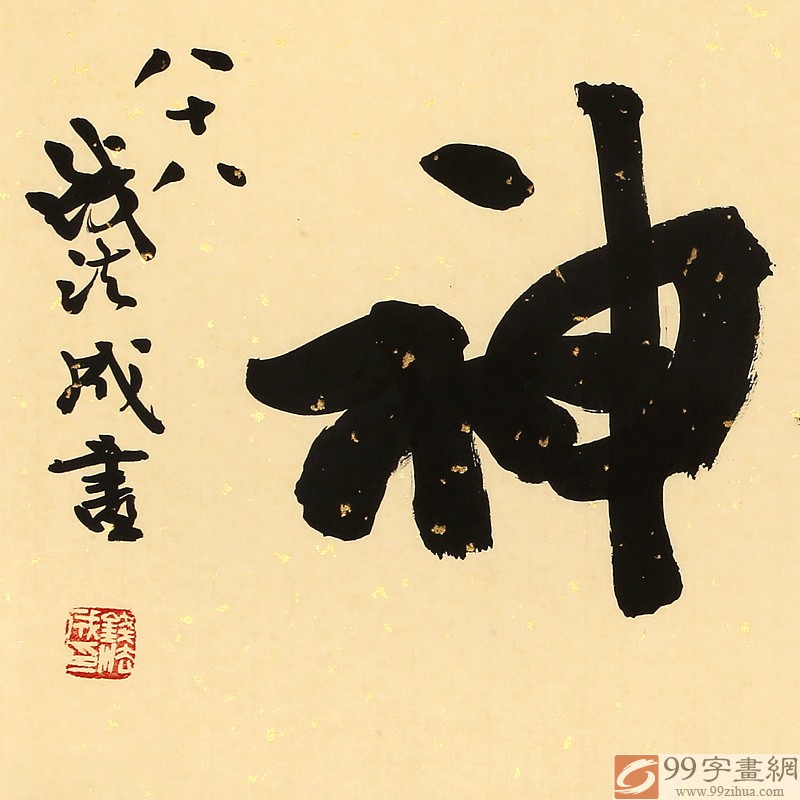 神
八十八
钱法成書
錢法成印
99字畫網
www.99zihua.com